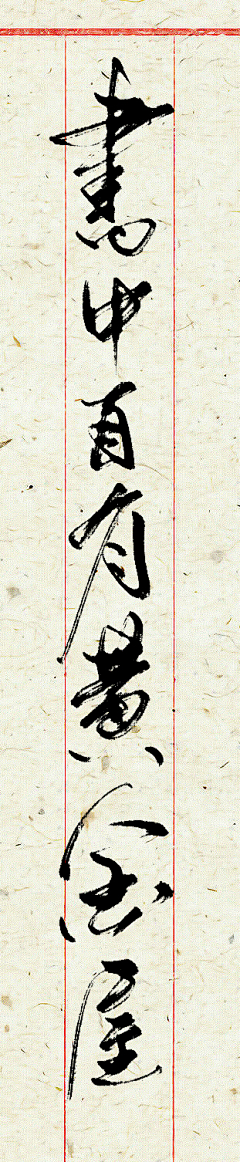 書中自有黄金屋